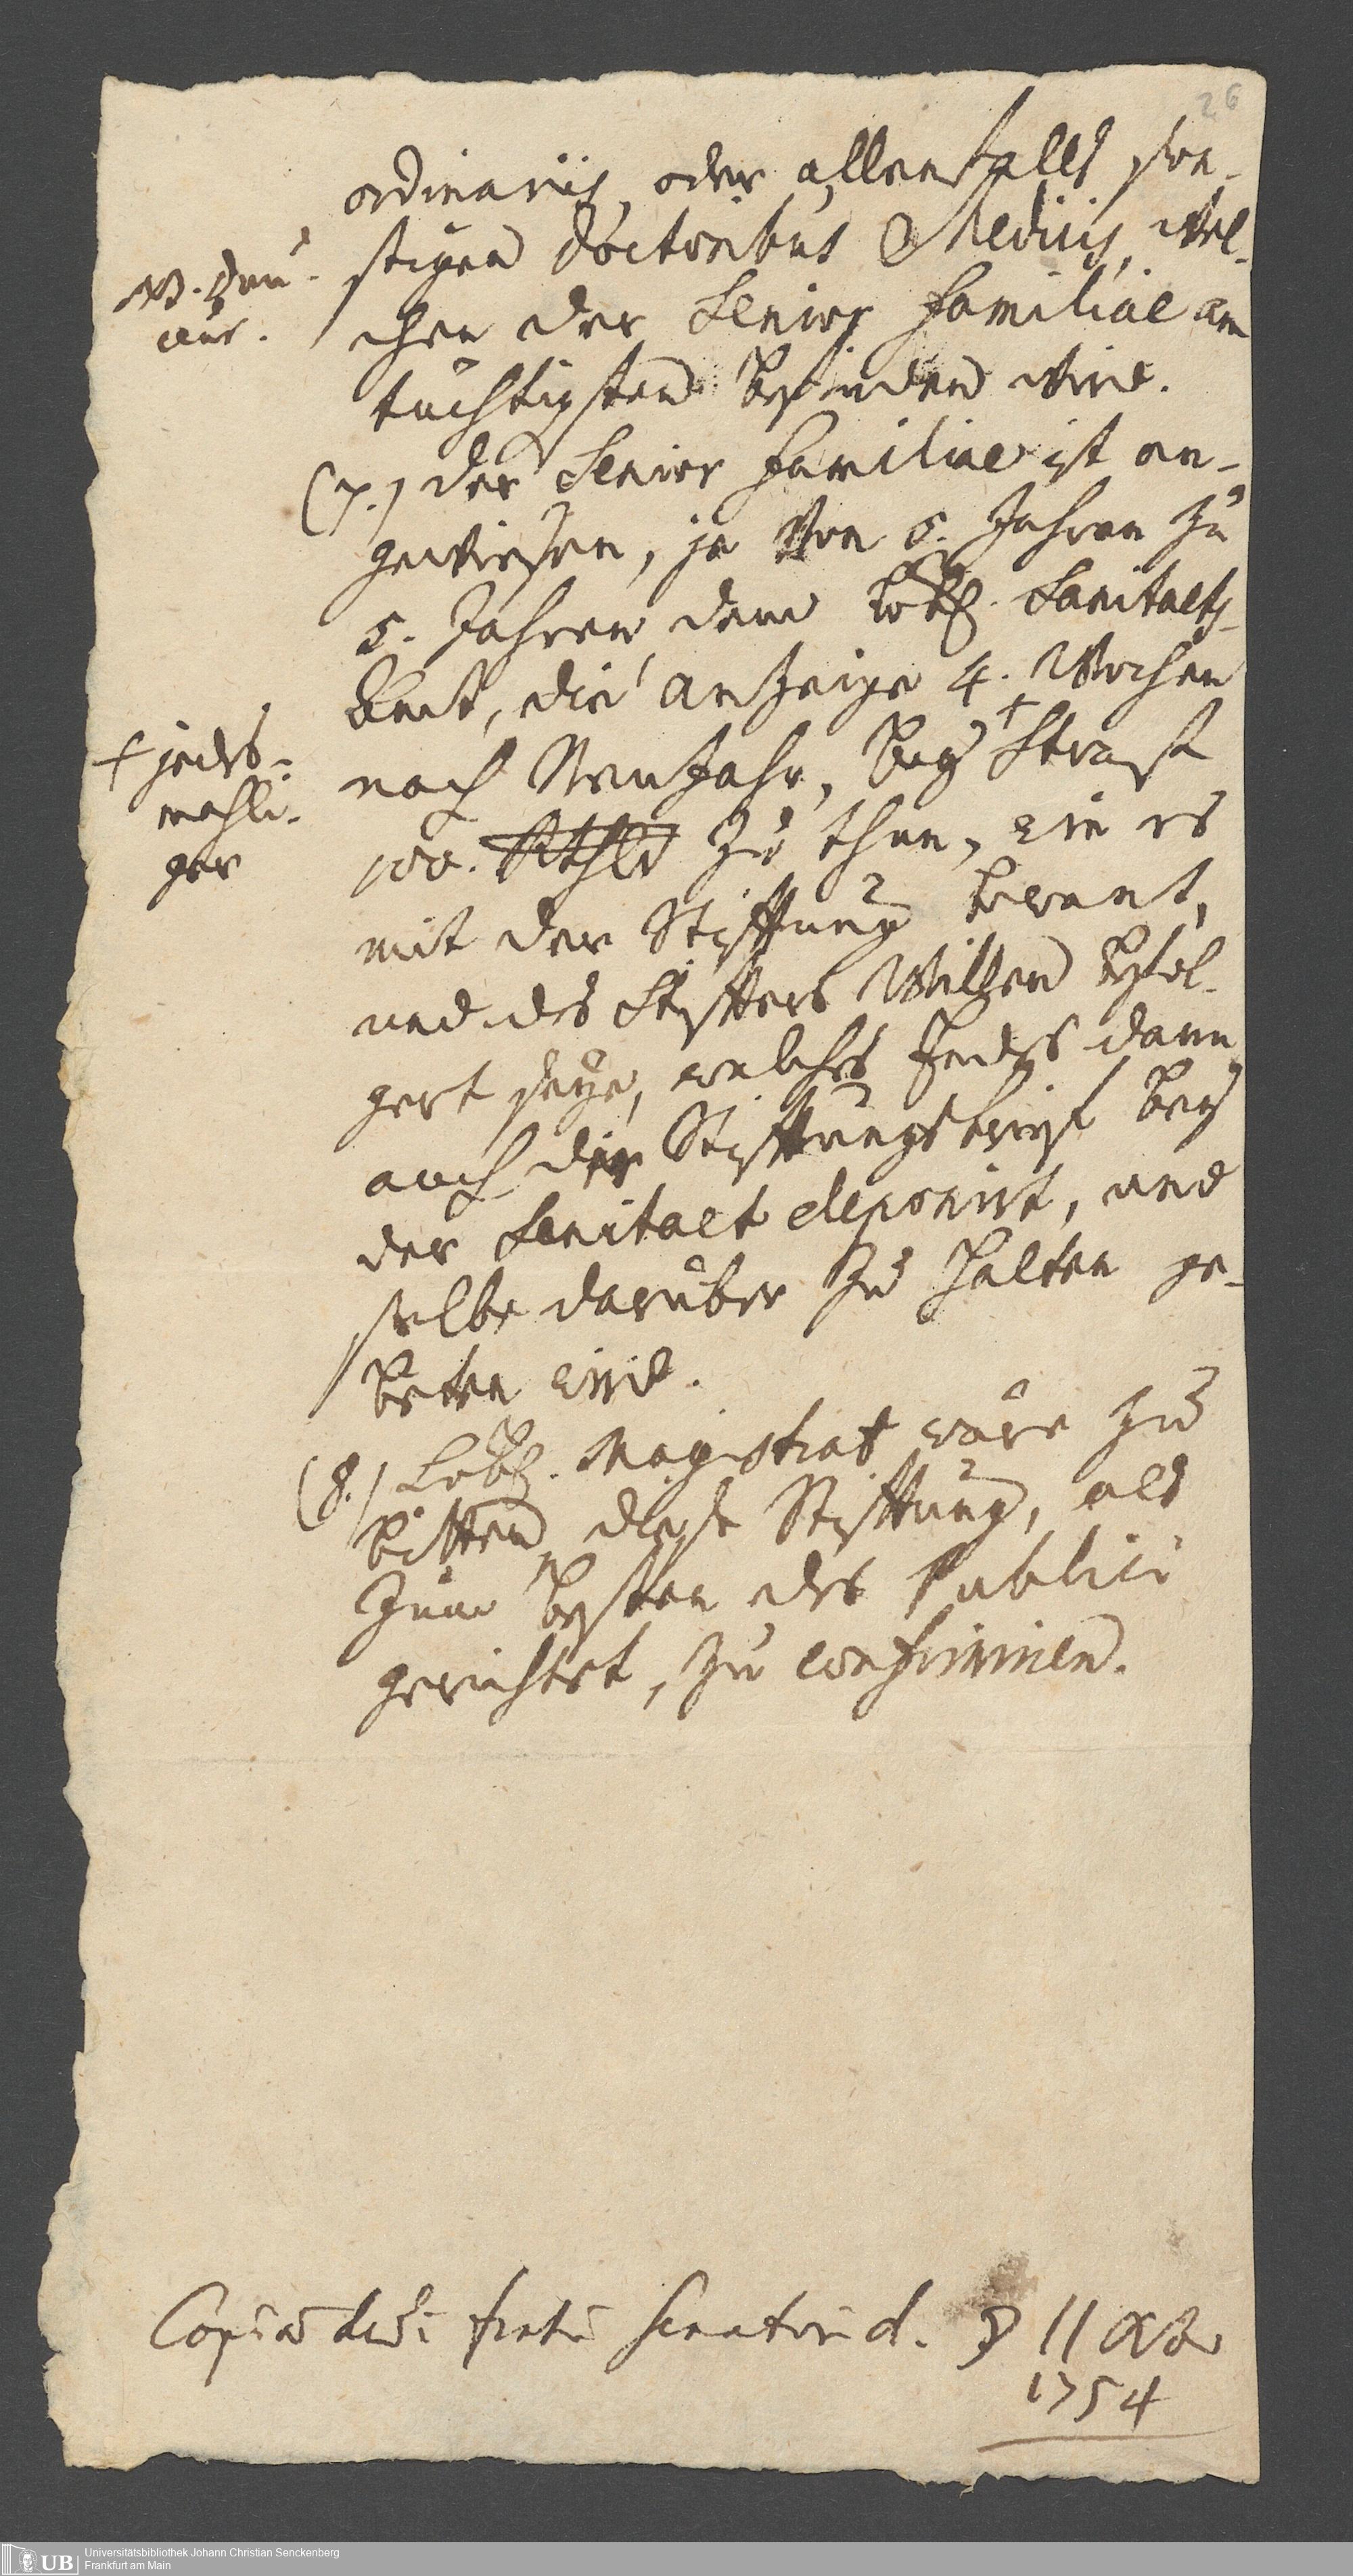 26
ordinariis, oder allenfalls son-
stigen Doctoribus Medicis, wel-
chen der Senior Familiae am
tüchtigsten befinden wird.
(7.) der Senior Familiae ist an-
gewiesen, je von 5. Jahren zu
5. Jahren dem löbl. Sanitaets
Amt, die anzeige 4. Wochen
nach Neu Jahr, bey + Straf
+ jedes-
mahli-
ger
100. Rthlr zu thun, wie es
mit der Stifftung bewant,
und des Stiffters Willen befol-
gert seye, welches Endes dann
auch der Stifftungsbrief bey
der Sanitaet deponirt, und
selbe darüber zu halten ge-
beten wird.
(8.) Löbl. Magistrat wäre zu
bitten, diese Stifftung, als
zum besten des Publici
gerichtet, zu confirmiren.
Copiam dedi fratri Senatori d. 11 Xbr
1754
UB
Universitätsbibliothek Johann Christian Senckenberg
Frankfurt am Main